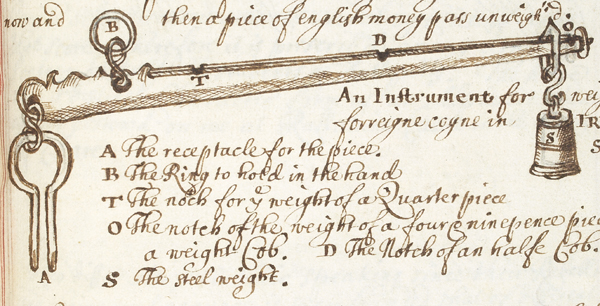 now and then a piece of english money pass unweigh'd
B
D
T
An Instrument for wei
forreigne coyne in IR
S
S
A The receptacle for the piece.
B The Ring to hold in the hand
T The noch for yͤ weight of a Quarter piece
O The notch of the weight of a foure & ninepence piec
a weight Cob. D The Notch of an halfe Cob.
S The steel weight.
A